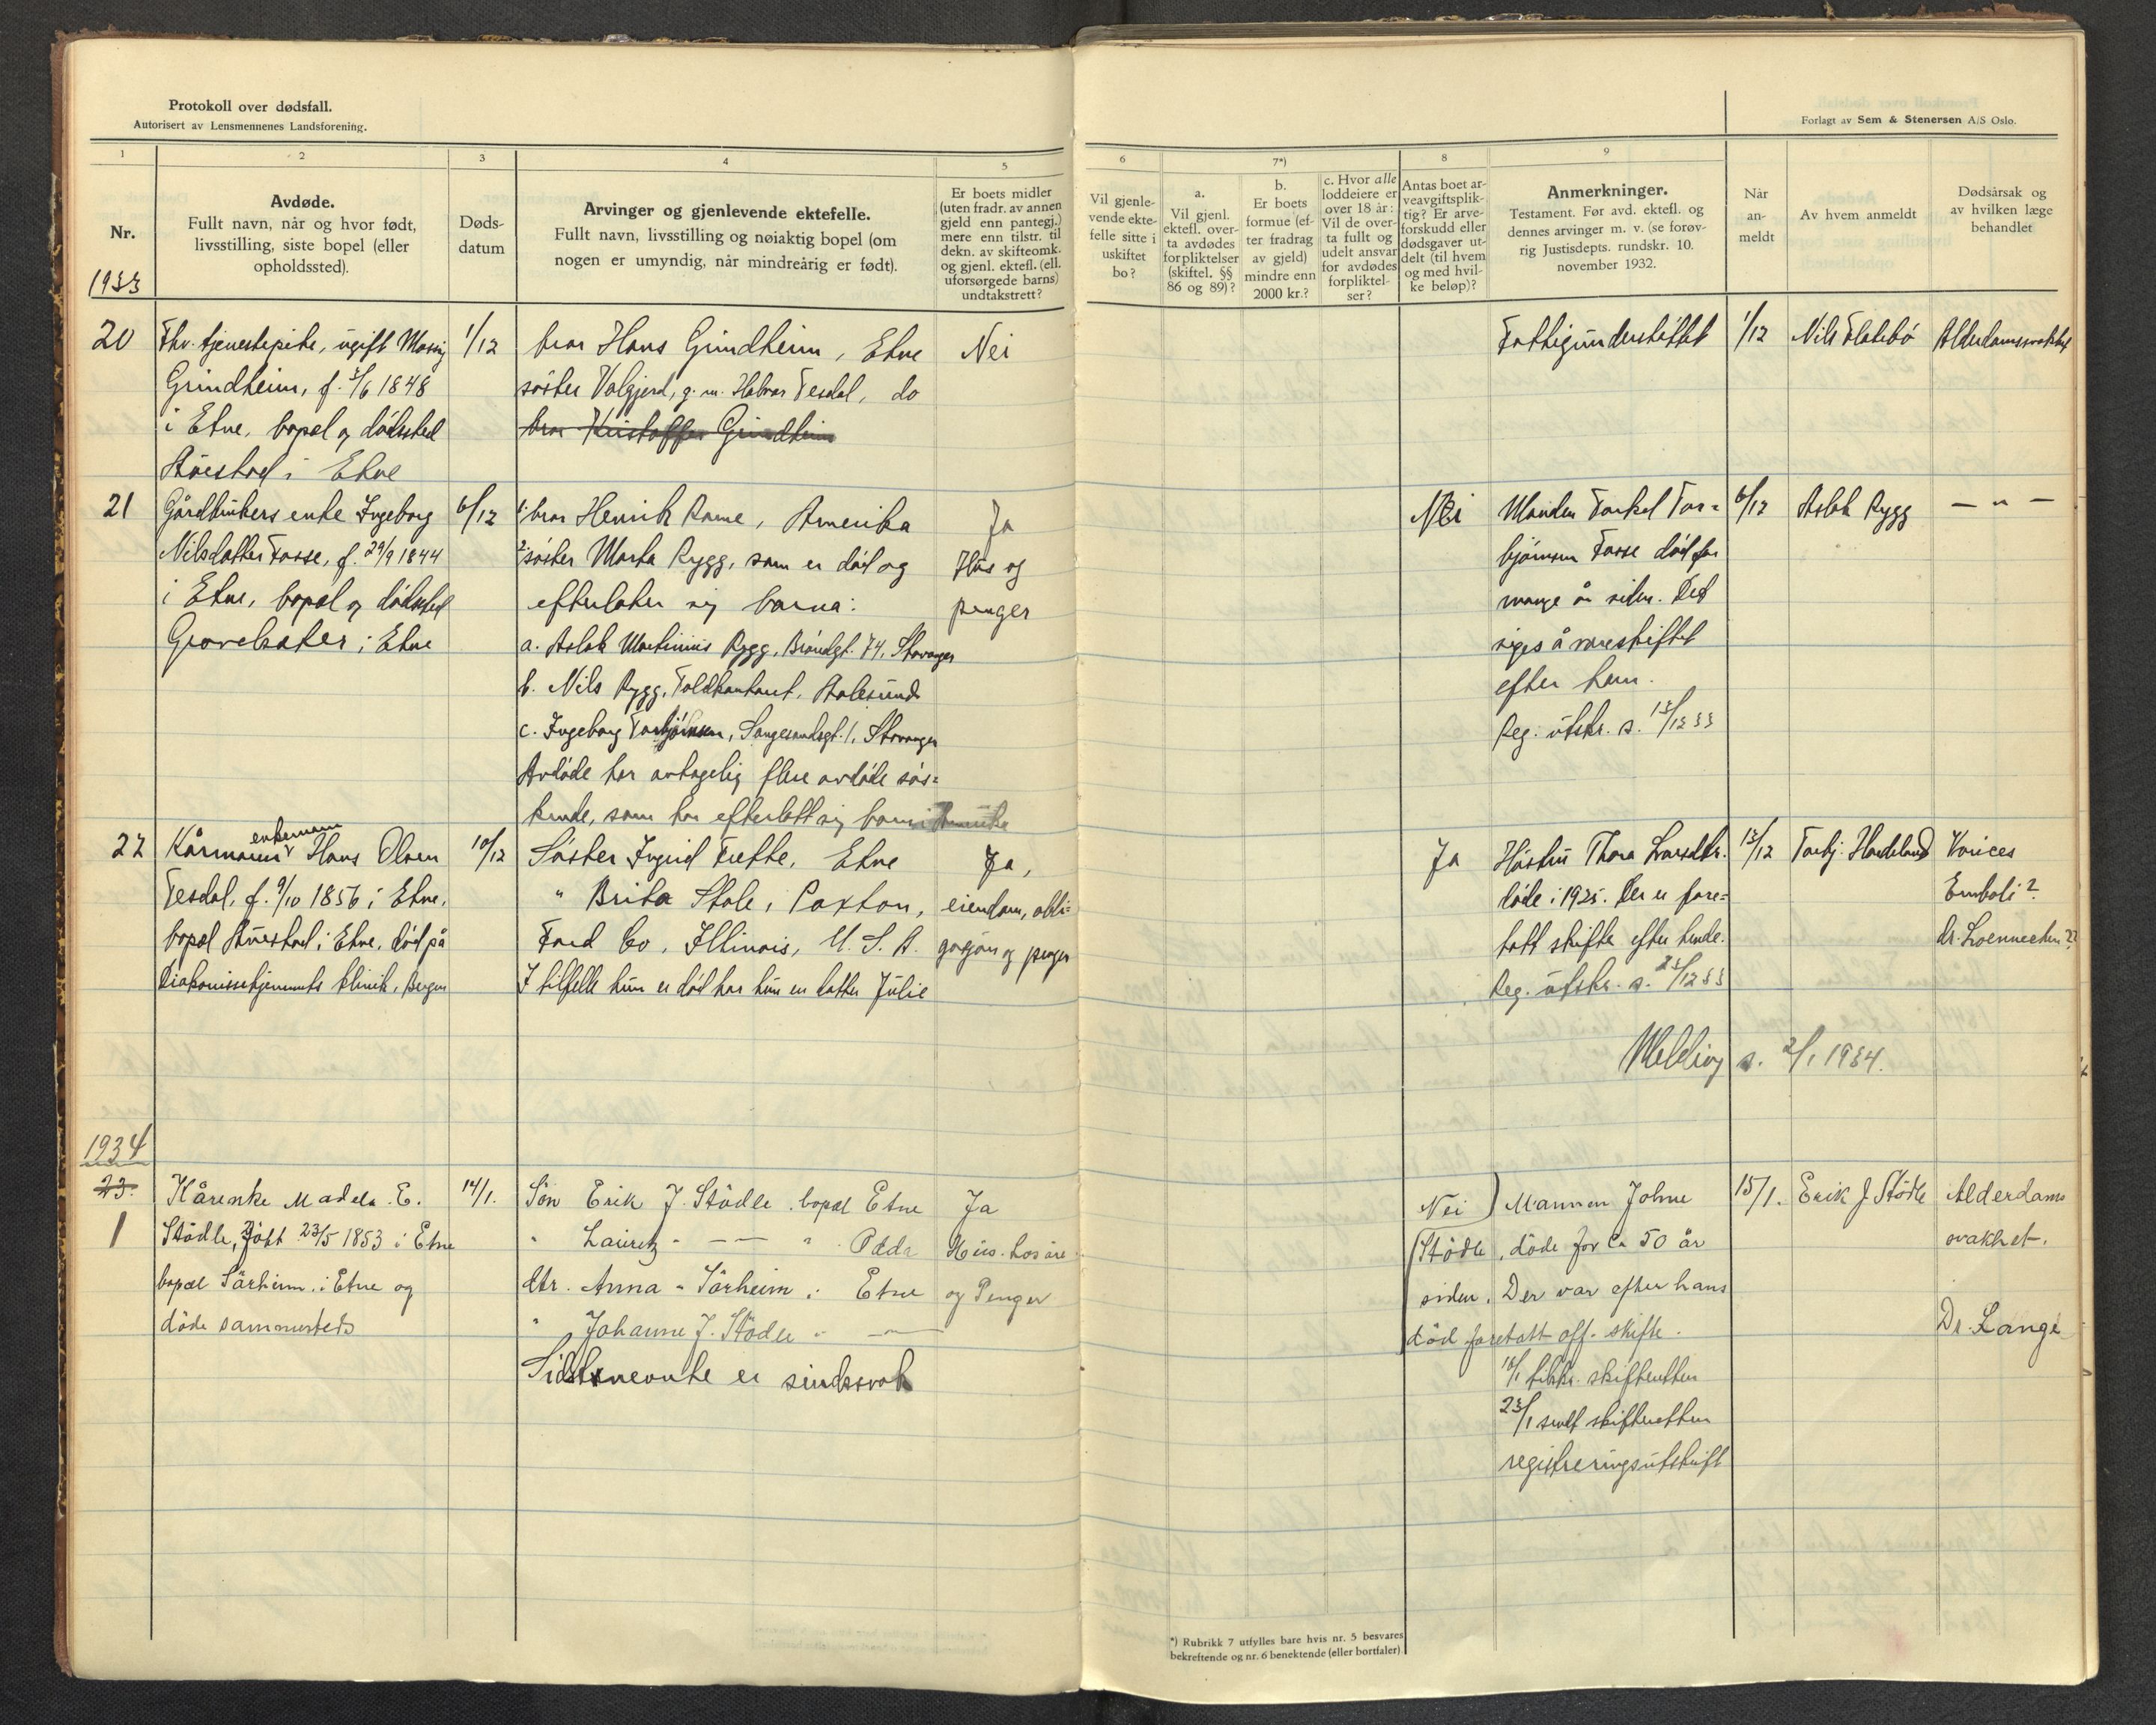 Protokoll over dødsfall.
Autorisert av Lensmennenes Landsforening.
Forlagt av Sem & Stenersen A/S Oslo.
1
2
3
4
5
6
7*)
8
9
Nr.
Avdøde.
Fullt navn, når og hvor født,
livsstilling, siste bopel (eller
opholdssted).
Døds-
datum
Arvinger og gjenlevende ektefelle.
Fullt navn, livsstilling og nøiaktig bopel (om
nogen er umyndig, når mindreårig er født).
Er boets midler
(uten fradr. av annen
gjeld enn pantegj.)
mere enn tilstr. til
dekn. av skifteomk.
og gjenl. ektefl. (ell.
uforsørgede barns)
undtakstrett?
Vil gjenle-
vende ekte-
felle sitte i
uskiftet
bo?
a.
Vil gjenl.
ektefl. over-
ta avdødes
forpliktelser
(skiftel. §§
86 og 89)?
b.
Er boets
formue (ef-
ter fradrag
av gjeld)
mindre enn
2000 kr.?
c. Hvor alle
loddeiere er
over 18 år:
Vil de over-
ta fullt og
udelt ansvar
for avdødes
forpliktel-
ser?
Antas boet ar-
veavgiftsplik-
tig? Er arve-
forskudd eller
dødsgaver ut-
delt (til hvem
og med hvil-
ke beløp)?
Anmerkninger.
Testament. Før avd. ektefl. og
dennes arvinger m. v. (se forøv-
rig Justisdepts. rundskr. 10.
november 1932.
Når
an-
meldt
Av hvem anmeldt
Dødsårsak og
av hvilken læge
behandlet
1933
20
Fhv. tjenestepike, ugift
Grindheim, f. 5/6 1848
i Etne, bopel og dødssted
i Etne
1/12
bror Hans Grindheim, Etne
søster Valgjerd, g. m. Halvor Tesdal, do
bror Kristoffer Grindheim
Nei
Fattigunderstøttet
1/12
Nils Flatebø
Alderdomssvakhet
21
Gårdbrukers enke Ingeborg
Nilsdatter Fosse, f. 29/9 1844
i Etne, bopel og dødssted
i Etne
6/12
1. bror Henrik Rame, Amerika
2. søster Marta Rygg, som er død og
efterlater sig barna:
a. Aslak Martinius Rygg, 74, Stavanger
b. Nils Rygg, Toldkontoret, Aalesund
c. Ingeborg Torbjørnsen, 1, Stavanger
Avdøde har antagelig flere avdøde søs-
kende, som har efterlatt sig barn i Amerika
Ja
Hus og
penger
Nei
Manden Torkel Tor-
bjørnsen Fosse død for
mange år siden. Det
siges å være skiftet
efter ham.
Reg. utskr. s. 13/12 33
6/12
Aslak Rygg
— " —
22
Kårmann enkemann Hans Olsen
Tesdal, f. 9/10 1856 i Etne,
bopel i Etne, død på
Diakonissehjemmets klinik, Bergen
10/12
Søster Ingrid Frette, Etne
" Brita Stole, Paxton,
Ford Co, Illinois, U. S. A.
I tilfelle hun er død har hun en datter Julie
Ja,
eiendom, obli-
gasjon og penger
Ja
Hustru Thora Larsdtr.
døde i 1925. Der er fore-
tatt skifte efter hende.
Reg. utskr. s. 23/12 33
Melding s. 2/1 1934.
13/12
Torbj. Håndeland
Varices
Emboli?
dr. Loennechen??
1934
23.
1
Kårenke Madela E.
Stødle, født 23/5 1853 i Etne
bopæl Sørheim i Etne og
døde sammesteds
14/1.
Søn Erik J. Stødle bopæl Etne
" Lauretz " — — " Odda
dtr. Anna " Sørheim i Etne
" Johanne J. Stødle " — " —
Sidstnevnte er sindssvak
Ja
og Penger
Nei
Mannen Johne
Stødle, døde for ca 50 år
siden. Der var efter hans
død foretatt off. skifte.
18/1 tilskr. skifteretten
23/1 sendt skifteretten
registreringsutskrift
15/1.
Erik J Stødle
Alderdoms
svakhet.
Dr. Lange
*) Rubrikk 7 utfylles bare hvis nr. 5 besvares
bekreftende og nr. 6 benektende (eller bortfaler)